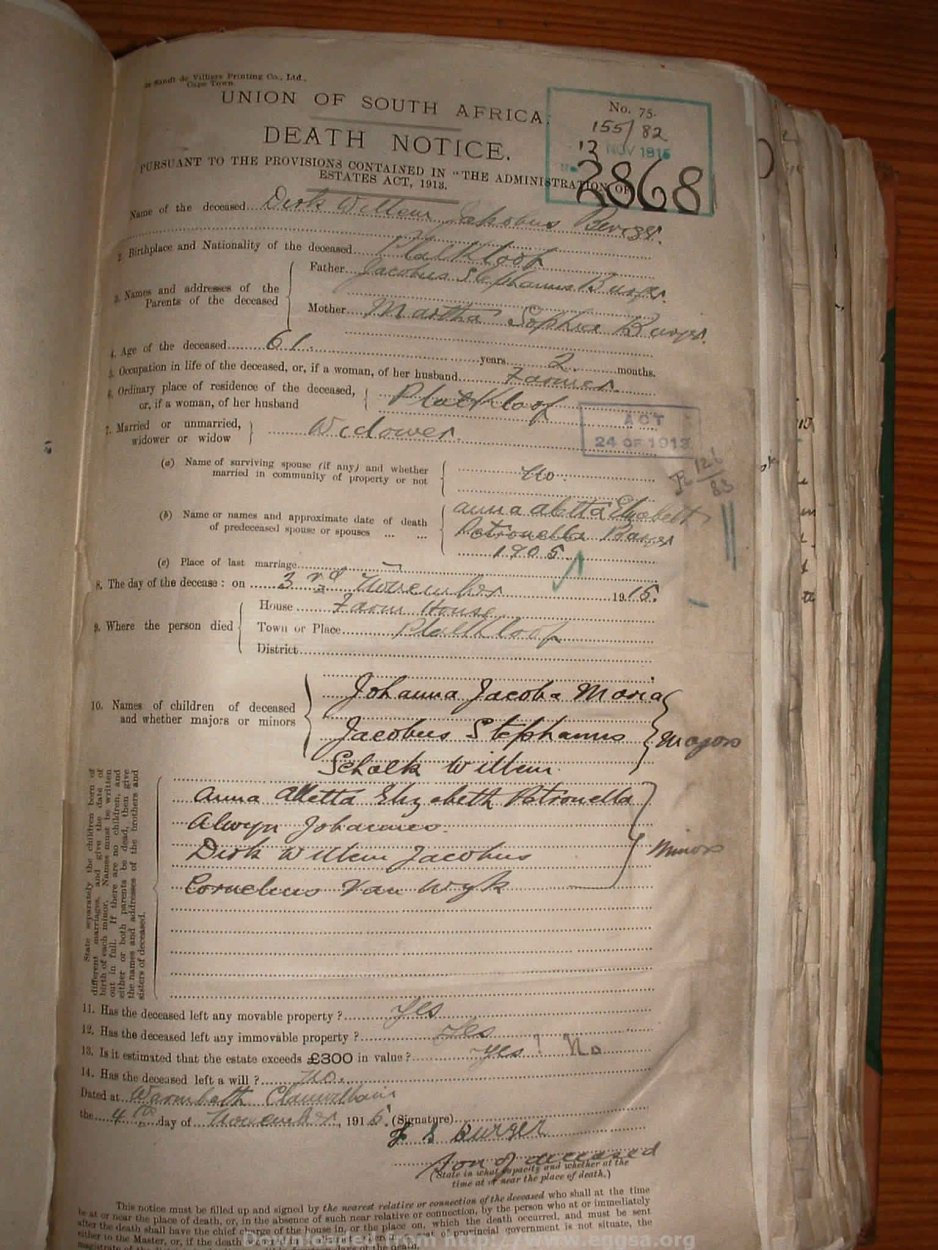 de Villiers Printing Co., Ltd.,
Cape Town
UNION OF SOUTH AFRICA.
DEATH NOTICE.
PURSUANT TO THE PROVISIONS CONTAINED IN "THE ADMINISTRATION OF
ESTATES ACT, 1913.
No. 75
155/82
NOV 1915
2868
Name of the deceased Dirk Willem Jakobus Burger.
2. Birthplace and Nationality of the deceased Platkloof
3. Names and addresses of the Parents of the deceased
Father Jacobus Stephanus Burger
Mother Martha Sophia Burger.
4. Age of the deceased 61 years 2 months.
5. Occupation in life of the deceased, or, if a woman, of her husband Farmer.
6. Ordinary place of residence of the deceased, or, if a woman, of her husband Platkloof
7. Married or unmarried, widower or widow Widower.
ACT
24 OF 1913
(a) Name of surviving spouse (if any) and whether married in community of property or not No.
(b) Name or names and approximate date of death of predeceased spouse or spouses ... ...
Anna Aletta Elizabeth
Petronella Burger
1905.
(c) Place of last marriage
8. The day of the decease: on 3rd November 1915.
9. Where the person died
House Farm House
Town or Place Platkloof
District
10. Names of children of deceased and whether majors or minors
Johanna Jacoba Maria
Jacobus Stephanus Majors
Schalk Willem
Anna Alletta Elizabeth Petronella
Alwyn Johannes.
Dirk Willem Jacobus Minors
Cornelius Van Wyk
State separately the children born of
different marriages, and give the date of
birth of each minor. Names must be written
out in full. If there are no children, and
either or both parents be dead, then give
the names and addresses of the brothers and
sisters of deceased.
11. Has the deceased left any movable property? Yes
12. Has the deceased left any immovable property? Yes
13. Is it estimated that the estate exceeds £300 in value? Yes No
14. Has the deceased left a will? No.
Dated at Clanwilliam
the 4th day of November, 1915. (Signature)
J S Burger
Son of deceased
(State in what capacity and whether at the
time at or near the place of death.)
This notice must be filled up and signed by the nearest relative or connection of the deceased who shall at the time
be at or near the place of death, or, in the absence of such near relative or connection, by the person who at or immediately
after the death shall have the chief charge of the house in, or the place on, which the death occurred, and must be sent
either to the Master, or, if the death seat of provincial government is not situate, the
Downloaded from http://www.eggsa.org